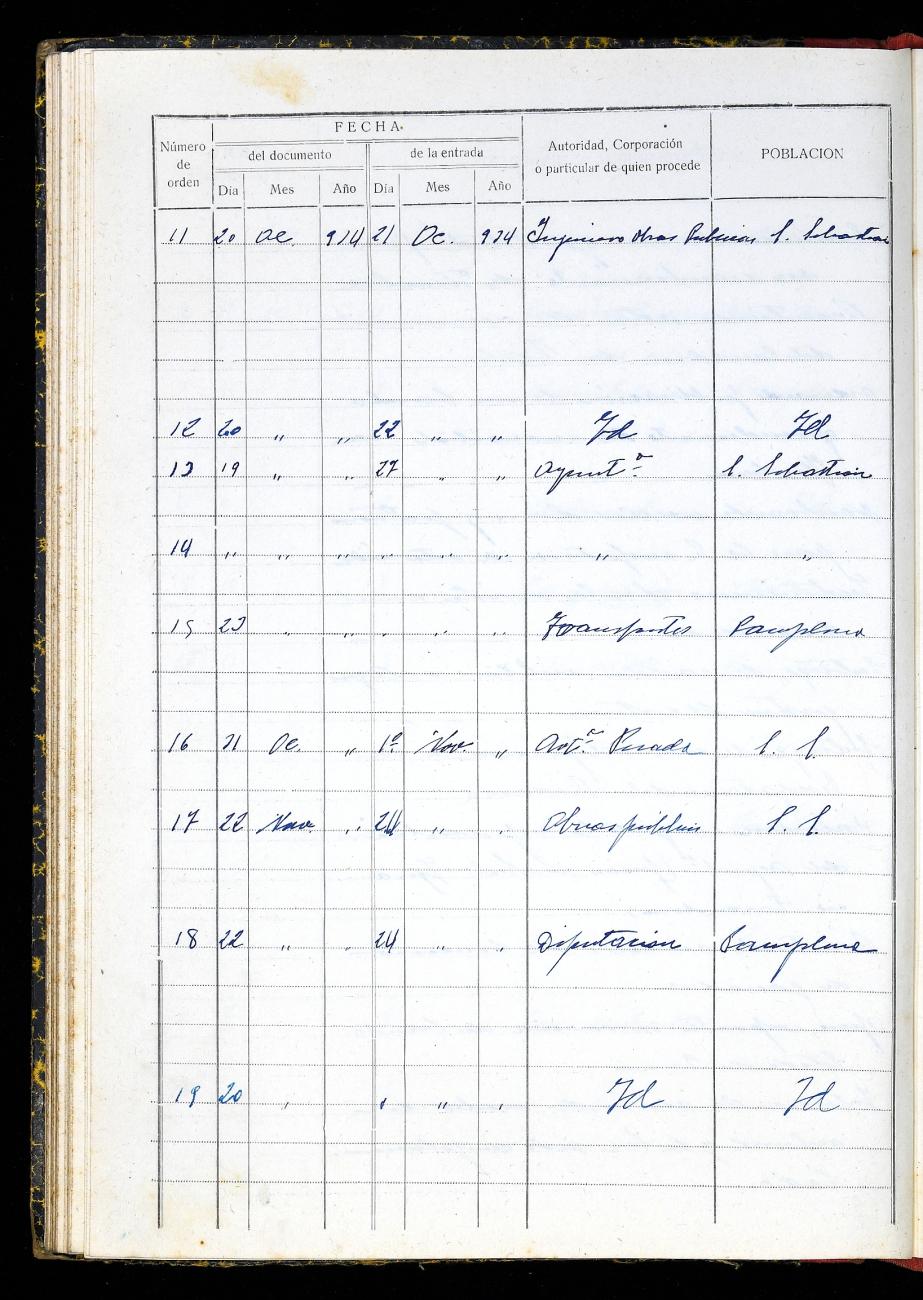 FECHA.
Número de orden
del documento de la entrada
Autoridad, Corporación
ó particular de quien procede
POBLACION
Día Mes Año Día Mes Año
11 20 Oc. 934 21 Oc. 934 Ingeniero Obras Publicas S. Sebastian
12 20 " " 22 " " Id Id
13 19 " " 27 " " Ayunt º. S. Sebastian
14 " " " " " " " "
15 23 " " " " " Transportes Pamplona
16 31 Oc. " 1º Nov. " S. S.
17 22 Nov. " 24 " " Obras publicas S. S.
18 22 " " 24 " " Diputacion Pamplona
19 20 " " " " Id Id